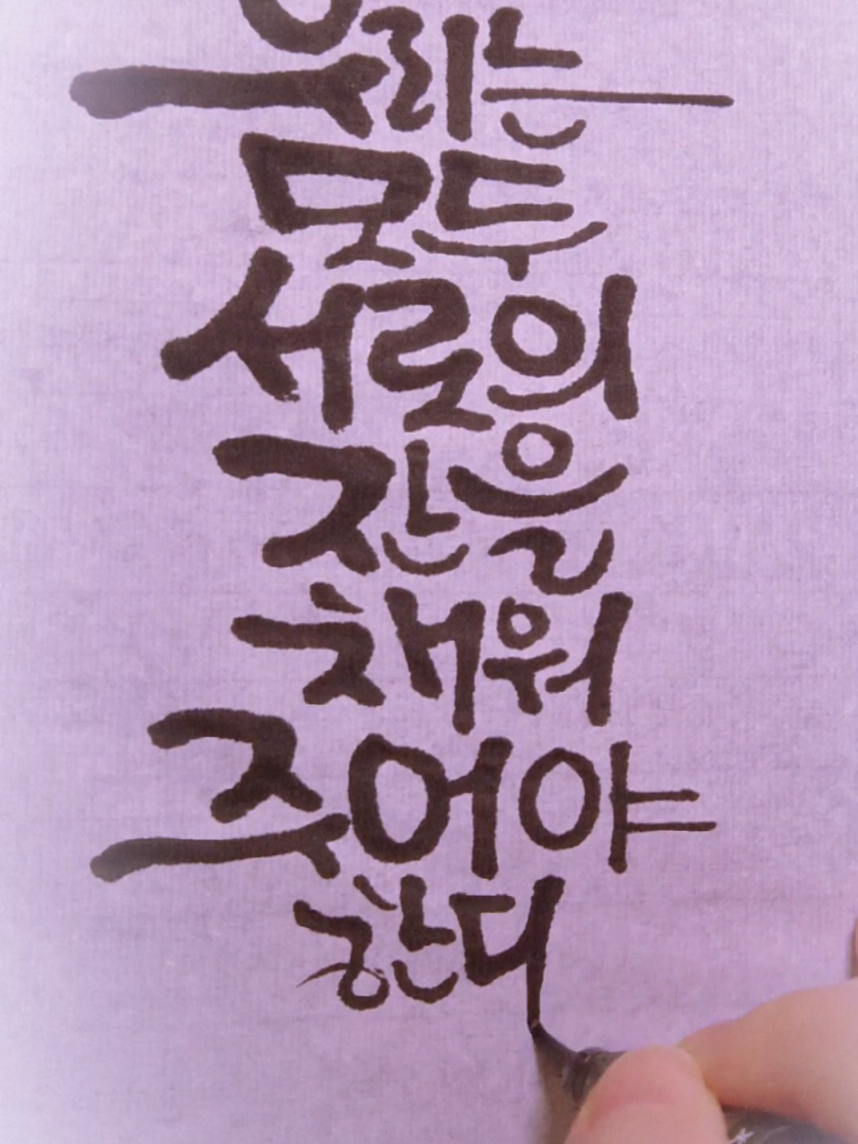 우리는
모두
서로의
잔을
채워
주어야
한디